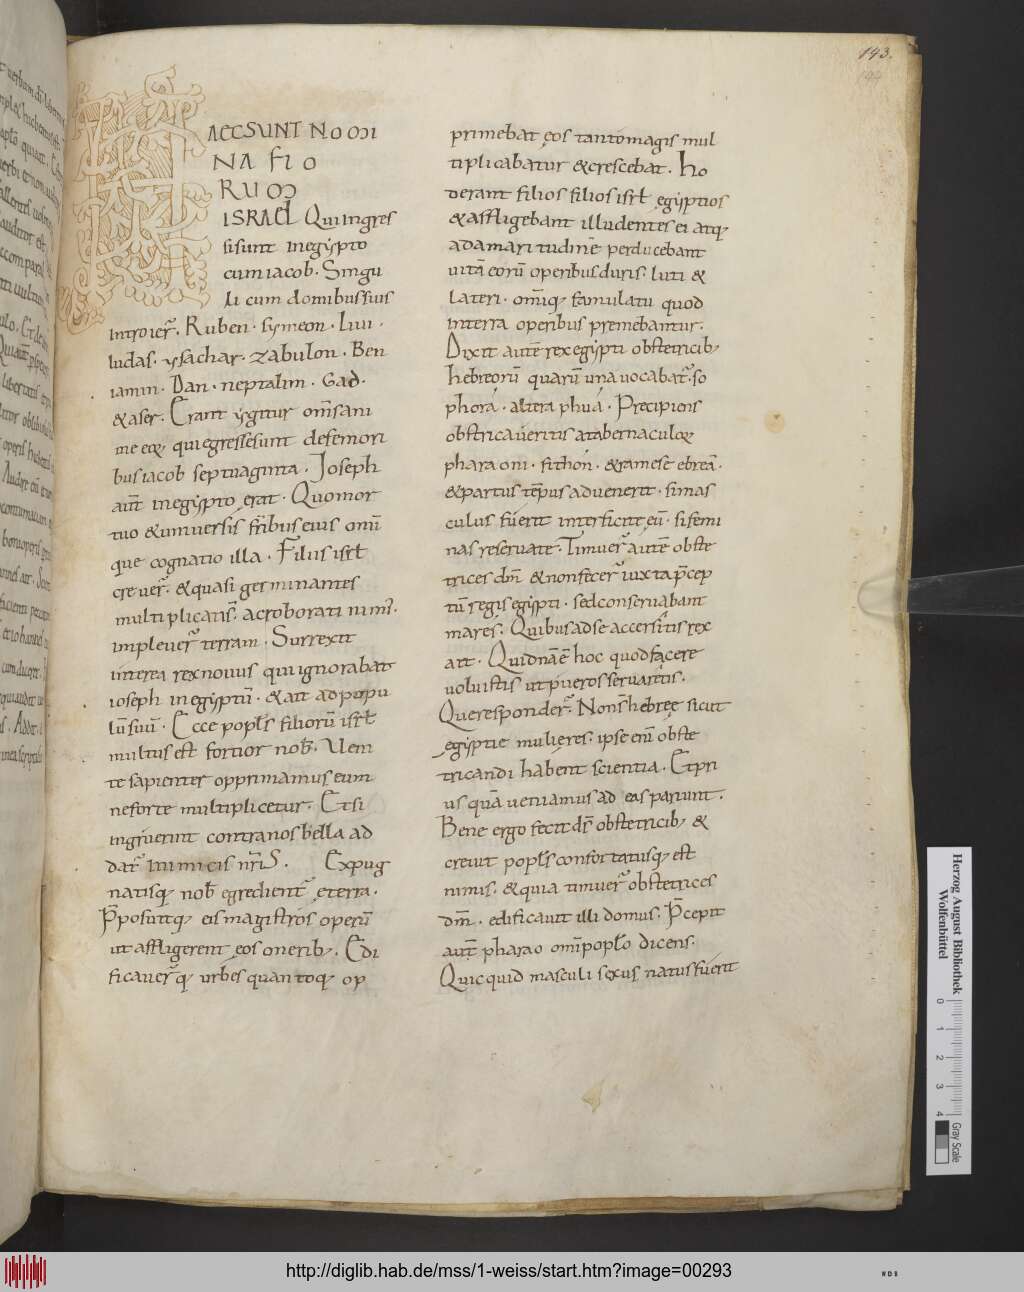 143.
144
HAEC SUNT NOMI
NA FIO
RUM
ISRAEL Qui ingres
sisunt in egẏpto
cum iacob. Singu
li cum domibussuis
introier̄. Ruben. sẏmeon. Liui.
Iudas. ẏsachar. zabulon. Ben
iamin. Dan. neptalim. Gad.
&aser. Erant ẏgitur om̄s ani
me eoꝝ, quiegressesunt defemori
bus iacob septuaginta. Ioseph
aut̄ inegẏpto ęrat. Quomor
tuo &uniuersis fr̄ibus eius omī
que cognatio illa. Filii isrł
creuer̄. &quasi germinantes
multiplicati s̄. acroborati nimī.
impleuer̄ terram. Surrexit
interea rexnouus quiignorabat
ioseph inegẏptū. &ait adpopu
lū suū. Ecce popłs filiorū isrł
multus est fortior nob̄. Ueni
te sapienter opprimamus eum
neforte multiplicetur. Etsi
ingruerint contranos bella ad
dat̄ inimicis nr̄iS. Expug
natisq; nob̄ egredient̄ ęterra.
P̄posuitq; eis magistros operū
ut affligerent ęos onerib;. Edi
ficauer̄q; urbes quantoq; op
primebat ęos tantomagis mul
tiplicabatur &crescebat. ho
derant filios filios isrł ęgẏptios
&affligebant illudentes ei atq;
adamaritudinē perducebant
uitā eorū operibus duris. luti &
lateri. omīq; famulatu quod
interra operibus premebantur.
Dixit autē rex egẏpti obstetricib;
hebreorū quarū una uocabat̄. so
phora. altera phua. Precipiens
obstricaueritis atabernaculoꝝ
pharaoni. fithon. &ramesse ebreā.
&partus tēpus aduenerit. si mas
culus fuerit interficite eū. sifemi
nas reseruate. Timuer̄ autē obste
trices dm̄ &nonfecer̄ iuxta p̄cep
tū regis egẏpti. sedconseruabant
mares. Quibusadse accersitis rex
ait. Quidnā ē hoc quodfacere
uoluistis ut pueros seruaretis.
Que responder̄. Non s̄ hebreę sicut
ęgẏptie mulieres. ipse enī obste
tricandi habent scientia. Etpri
us quā ueniamus ad eas pariunt.
Bene ergo fecit ds̄ obstetricib; &
creuit popłs confortatusq; est
nimis. &quia timuer̄ obstetrices
dm̄. edificauit illi domus. P̄cepit
aut̄ pharao omī popło dicens.
Quicquid masculi sexus natus fuerit
Herzog August Bibliothek
Wolfenbüttel
0 1 2 3 4
Gray Scale
http://diglib.hab.de/mss/1-weiss/start.htm?image=00293